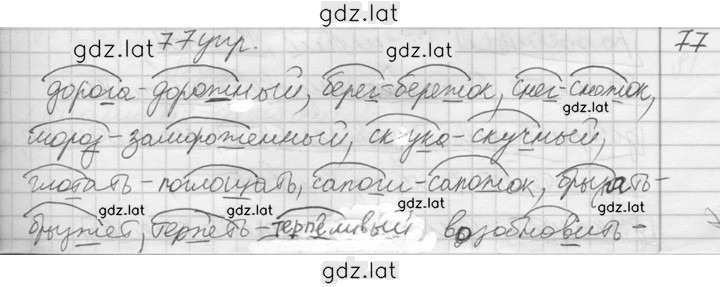 gdz.lat
77упр. 77
gdz.lat
дорога-дорожный, берег-бережок, снег-снежок,
gdz.lat
мороз-замороженный, скука-скучный,
gdz.lat
глотать-поглощать, сапоги-сапожок, брызгать-
gdz.lat gdz.lat gdz.lat
брызжет, терпеть-терпеливый, возобновить-
gdz.lat